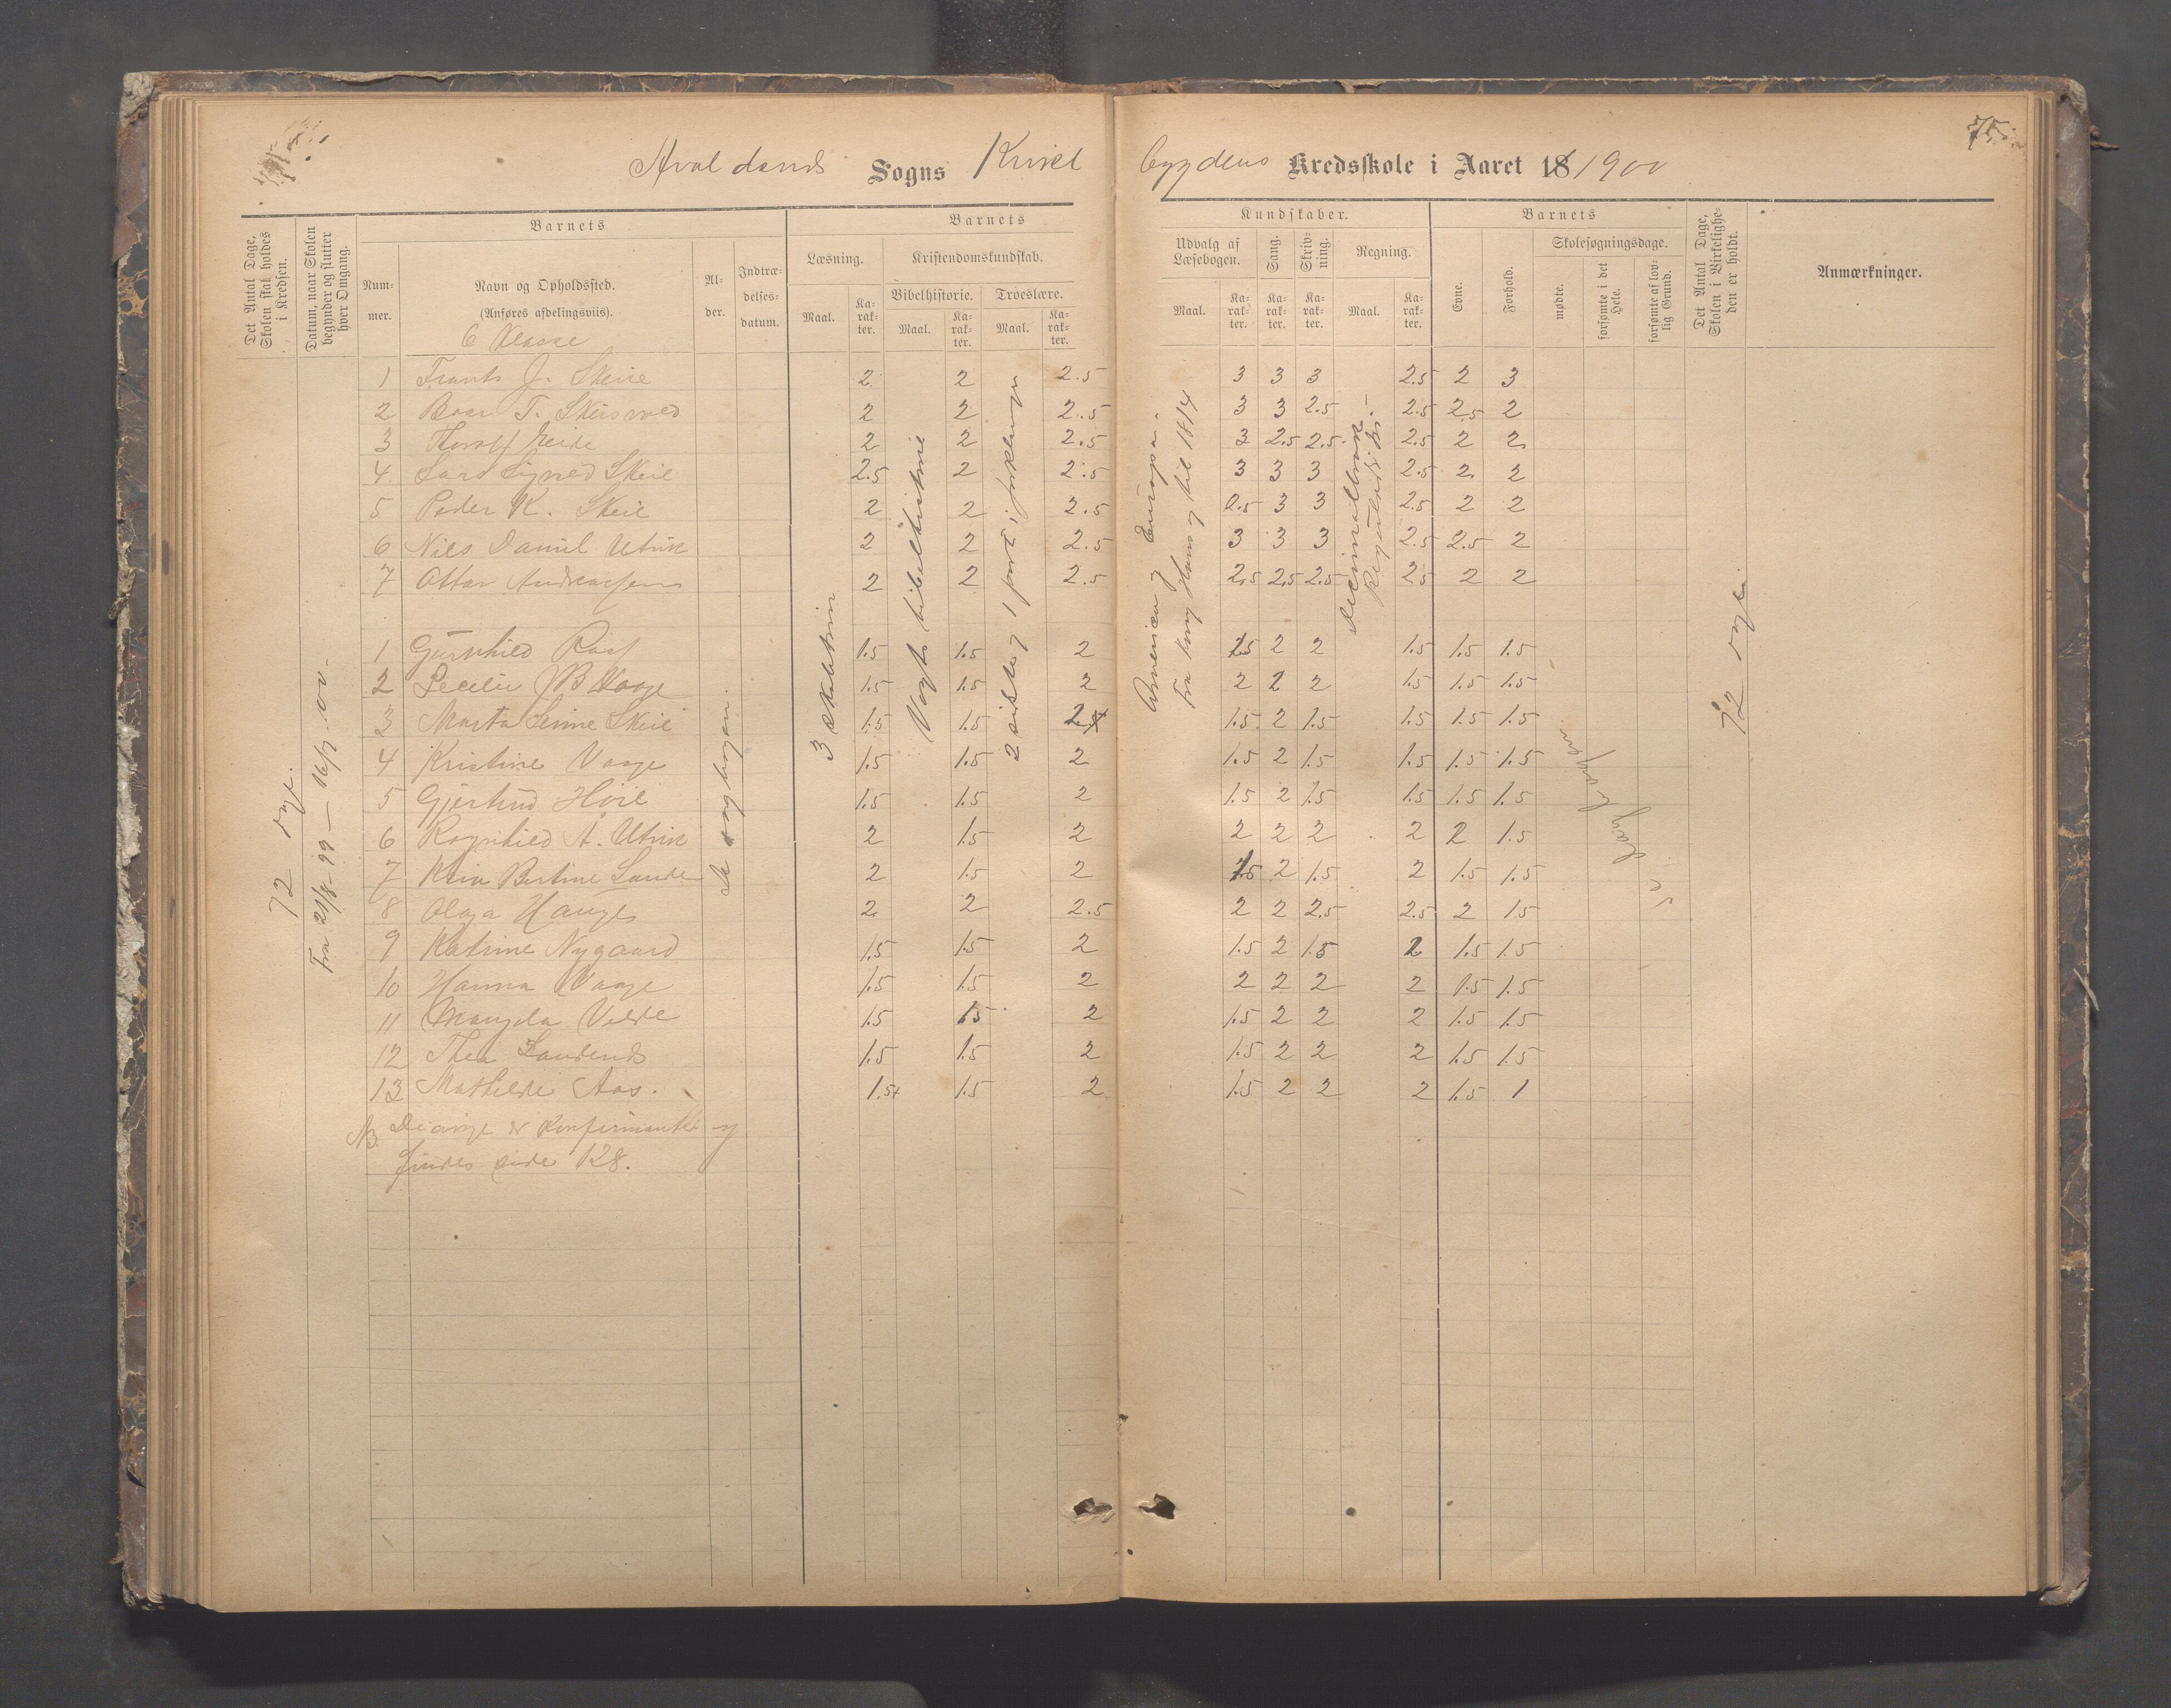 Avaldsnes Sogns Kvitsø bygdens Kredsskole i Aaret 18 1900
75.
Det Antal Dage, Skolen skal holdes i Kredsen.
Datum, naar Skolen begynder og slutter hver Omgang.
Barnets
Nummer.
Navn og Opholdssted.
(Anføres afdelingsviis).
6 Klasse
Alder.
Indtrædelsesdatum.
Barnets
Læsning.
Kristendomskundskab.
Bibelhistorie.
Troeslære.
Maal.
Karakter.
Maal.
Karakter.
Maal.
Karakter.
Kundskaber.
Udvalg af Læsebogen.
Sang.
Skrivning.
Regning.
Maal.
Karakter.
Karakter.
Karakter.
Maal.
Karakter.
Barnets
Evne.
Forhold.
Skolesøgningsdage.
mødte.
forsømte i det Hele.
forsømte af lovlig Grund.
Det Antal Dage, Skolen i Virkeligheden er holdt.
Anmærkninger.
1 J. Skeie 2 2 2.5 3 3 3 2.5 2 3
2 T. 2 2 2.5 3 3 2.5 2.5 2.5 2
3 2 2 2.5 3 2.5 2.5 2.5 2 2
4 Lars Skeie 2.5 2 2.5 3 3 3 2.5 2 2
5 Peder K. Skeie 2 2 2.5 2.5 3 3 2.5 2 2
6 Nils Daniel Utvik 2 2 2.5 3 3 3 2.5 2.5 2
7 Ottar Andreassen 2 2 2.5 2.5 2.5 2.5 2.5 2 2
1 1.5 1.5 2 1.5 2 2 1.5 1.5 1.5
2 Vaage 1.5 1.5 2 2 2 2 1.5 1.5 1.5
3 Marta Skeie 1.5 1.5 2 1.5 2 1.5 1.5 1.5 1.5
4 Kristine Vaage 1.5 1.5 2 1.5 2 1.5 1.5 1.5 1.5
5 Gjertrud Høie 1.5 1.5 2 1.5 2 1.5 1.5 1.5 1.5
6 Ragnhild A. Utvik 2 1.5 2 2 2 2 2 2 1.5
7 Bertine Lande 2 1.5 2 1.5 2 1.5 2 1.5 1.5
8 Olga Hauge 2 2 2.5 2 2 2.5 2.5 2 1.5
9 Katrine Nygaard 1.5 1.5 2 1.5 2 1.5 2 1.5 1.5
10 Hanna Vaage 1.5 1.5 2 2 2 2 2 1.5 1.5
11 Magda Velde 1.5 1.5 2 1.5 2 2 2 1.5 1.5
12 Thea 1.5 1.5 2 1.5 2 2 2 1.5 1.5
13 Mathilde Aas. 1.5+ 1.5 2 1.5 2 2 2 1.5 1
NB De øvrige er konfirmanter og
findes side 128.
72 dage.
Fra 21/8-99 — 16/7-00-
3 skoletrin
Vogts bibelhistorie
2 sidste og 1 part i forklaringen
Amerika og Europa.
Fra kong Hans og til 1814
Decimalbrøk
Se dagbogen.
Se dagbogen
72 dage.